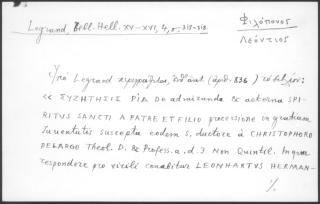 Legrand, Bibl. Hell. XV-XVI, 4, σ. 215-216
Φιλόπονος
Λεόντιος
Ὑπὸ Legrand περιγράφεται, ἐνθ' ἀνωτ. (ἀριθ. 836) τὸ βιβλίον:
« ΣΥΖΗΤΗΣΙΣ PIA DE admiranda & aeterna SPI-
RITUS SANCTI A PATRE ET FILIO processione in gratiam
Iuventutis suscepta eodem S. ductore à CHRISTOPHORO
PELARGO Theol. D. & Profess. a. d. 3. Non. Quintil. In qua
respondere pro virili conabitur LEONHARTUS HERMAN-